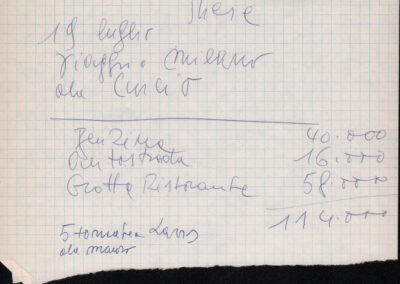 Spese
19 luglio
viaggio Milano
da Curcio
Benzina 40.000
Autostrada 16.000
Grotta Ristorante 58.000
114.000
5 
da Mauro